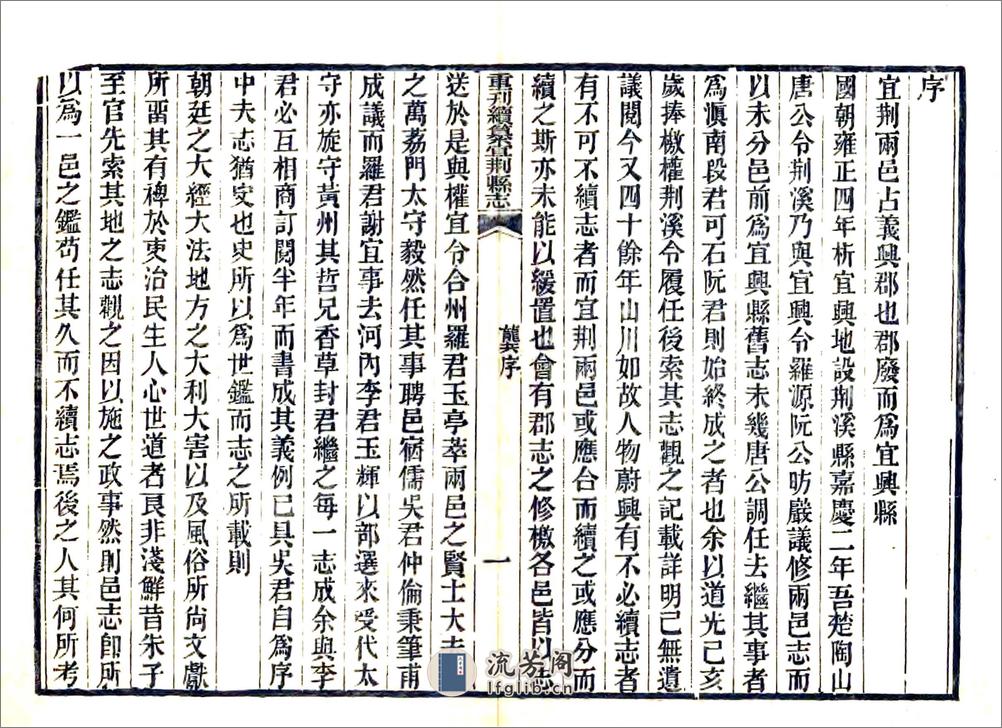 序
宜荆兩邑占義興郡也郡廢而爲宜興縣
國朝雍正四年析宜興地設荆溪縣嘉慶二年吾楚陶山
唐公令荆溪乃與宜興令羅源阮公昉嚴議修兩邑志而
以未分邑前爲宜興縣舊志未幾唐公調任去繼其事者
爲滇南段君可石阮君則始終成之者也余以道光己亥
歲捧檄權荆溪令履任後索其志觀之記載詳明已無遺
議閱今又四十餘年山川如故人物蔚興有不必續志者
有不可不續志者而宜荆兩邑或應合而續之或應分而
續之斯亦未能以緩置也會有郡志之修檄各邑皆以志
重刋續纂宜荆縣志
龔序
一
送於是與權宜令合州羅君玉亭萃兩邑之賢士大夫
之萬荔門太守毅然任其事聘邑宿儒吳君仲倫秉筆甫
成議而羅君謝宜事去河內李君玉輝以部選來受代太
守亦旋守黃州其哲兄香草封君繼之每一志成余與李
君必互相商訂閱半年而書成其義例已具吳君自爲序
中夫志猶史也史所以爲世鑑而志之所載則
朝廷之大經大法地方之大利大害以及風俗所尙文獻
所畱其有裨於吏治民生人心世道者良非淺鮮昔朱子
至官先索其地之志觀之因以施之政事然則邑志卽所
以爲一邑之鑑苟任其久而不續志焉後之人其何所考
流芳阁
lfglib.cn